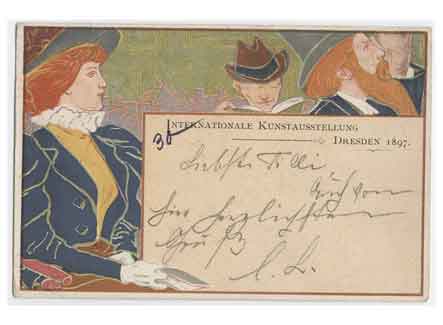 INTERNATIONALE KUNSTAUSSTELLUNG
DRESDEN 1897.
30
Liebste Tilli
Auch von
hier herzlichsten
Gruß